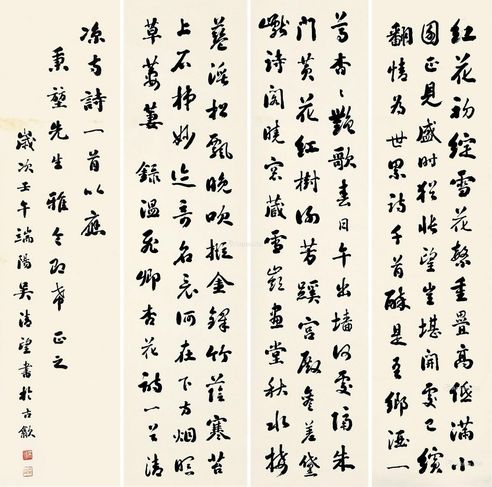 紅花初綻雪花繁重疊高低滿小
園正見盛時猶悵望豈堪開處已繽
翻情為世累詩千首醉是吾鄉酒一
尊杳々艷歌春日午出墻何處隔朱
門黃花紅樹謝芳蹊宮殿參差黛
巘詩閣曉窗藏雪嶺畫堂秋水接
藍溪松飄晚吹摐金鐸竹蔭寒苔
上石梯妙迹奇名竟何在下方烟暝
草萋萋 錄溫飛卿杏花詩一首清
涼寺詩一首以應
秉堃先生雅令即希 正之
歲次壬午端陽吳清望書於古歙